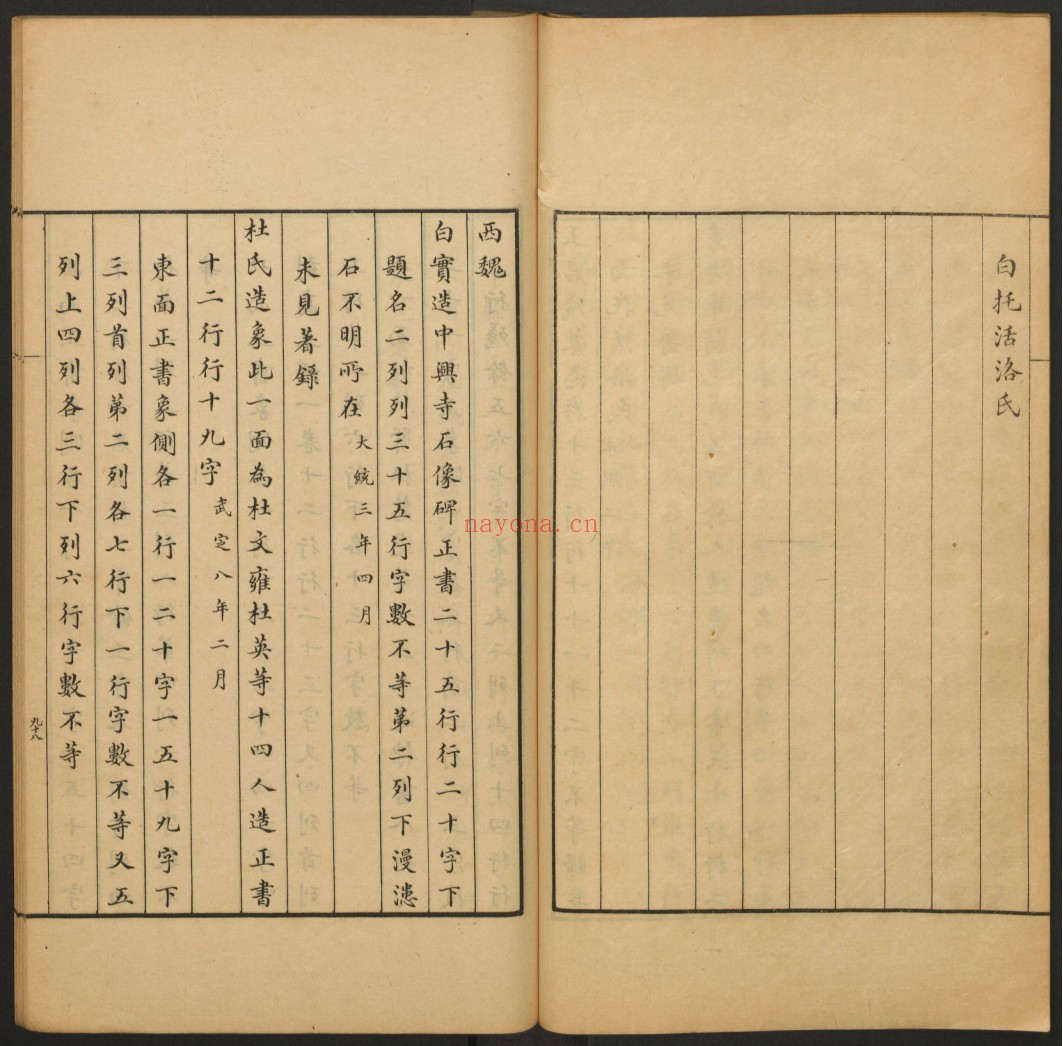 白托活洛氏
西魏
白實造中興寺石像碑正書二十五行行二十字下
題名二列列三十五行字數不等第二列下漫漶
石不明所在大統三年四月
未見著錄
杜氏造象此一面為杜文雍杜英等十四人造正書
十二行行十九字武定八年二月
東面正書象側各一行一二十字一五十九字下
三列首列第二列各七行下一行字數不等又五
列上四列各三行下列六行字數不等
九十八
nayona.cn